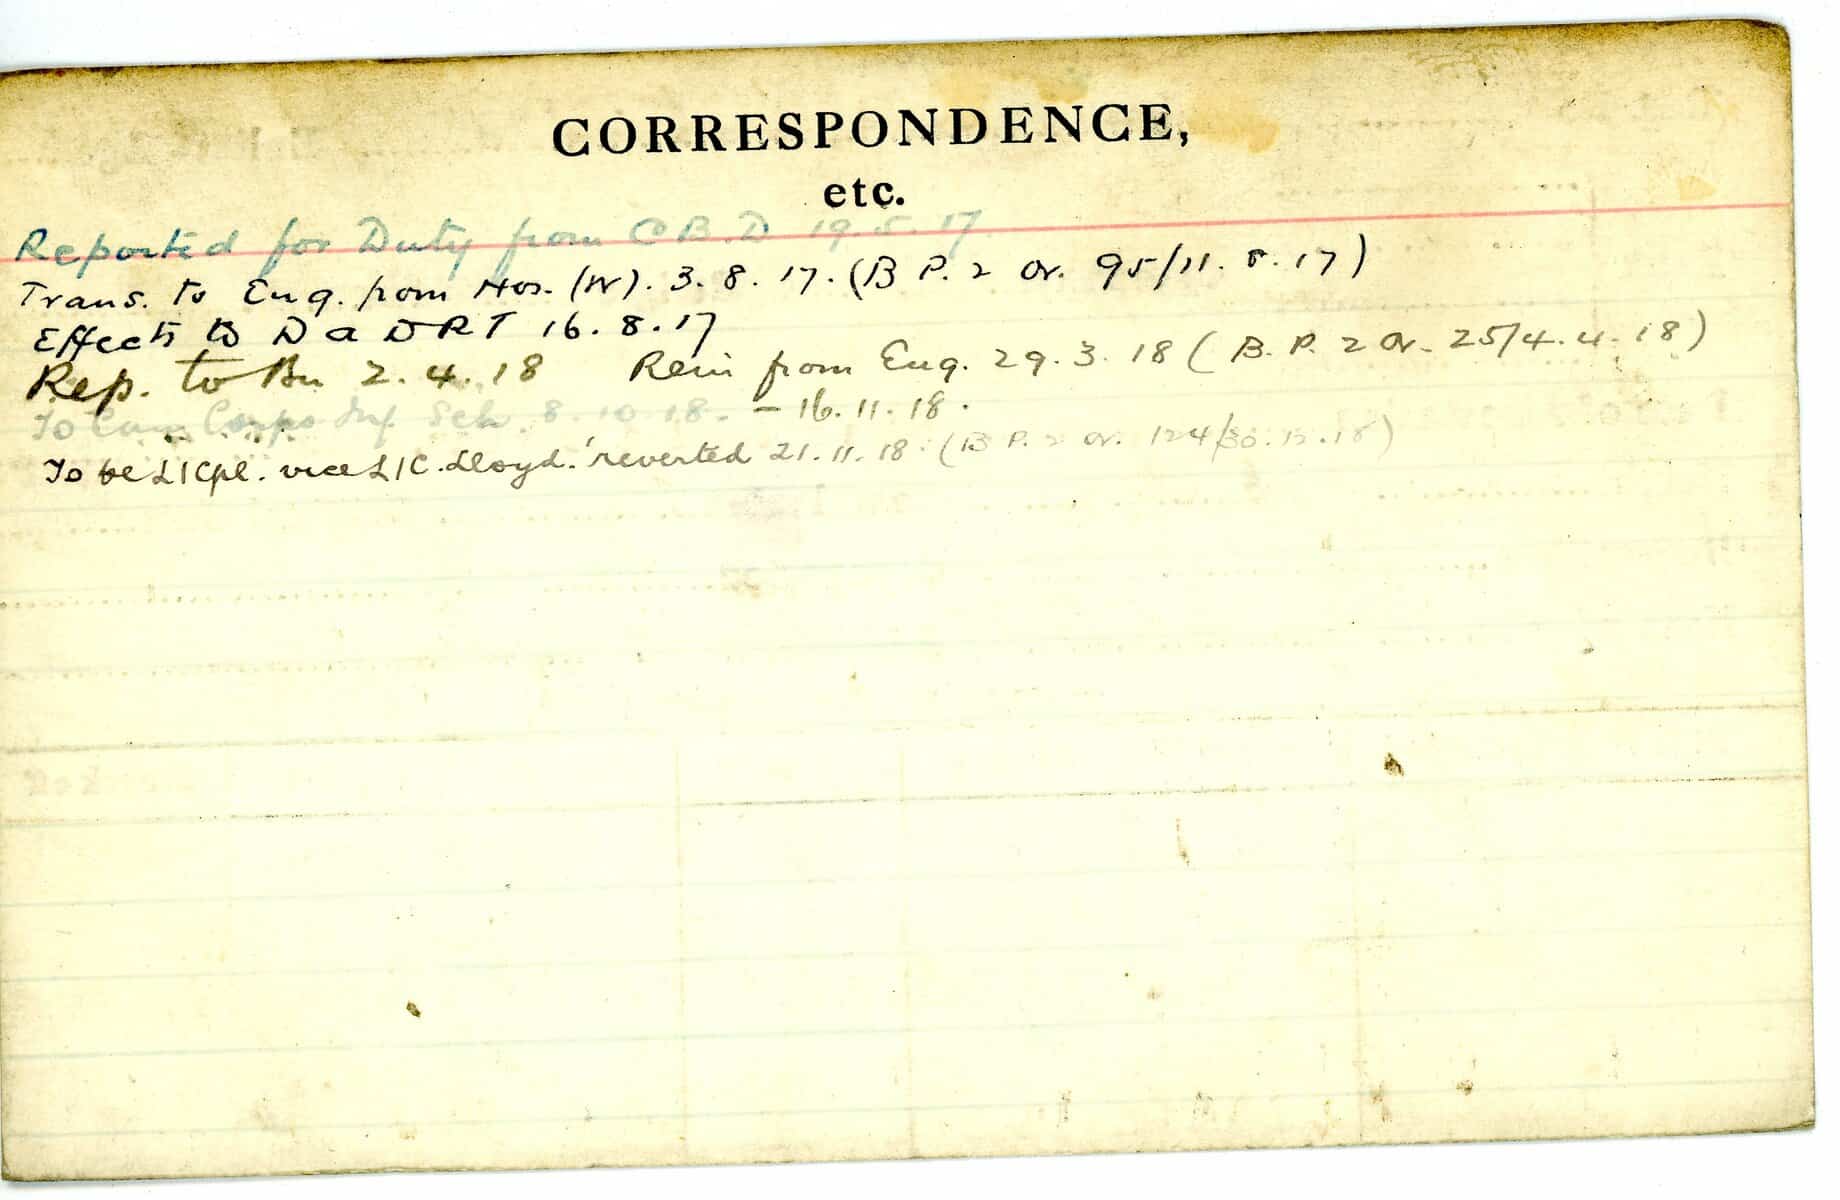 CORRESPONDENCE,
etc.
Reported for Duty from C B. D 19. 5. 17
Trans. to Eng. from Hos. (W). 3. 8. 17. (B P. 2 Or. 95/11. 8. 17)
Effects to D a D R T 16. 8. 17
Rep. to Bn 2. 4. 18 Rein from Eng. 29. 3. 18 (B. P. 2 Or. 25/4. 4. 18)
To Can Corps Inf Sch. 8. 10. 18. – 16. 11. 18.
To be L/Cpl. vice L/C. Lloyd. reverted 21. 11. 18. (B P. 2 Or. 124/30. 12. 18)